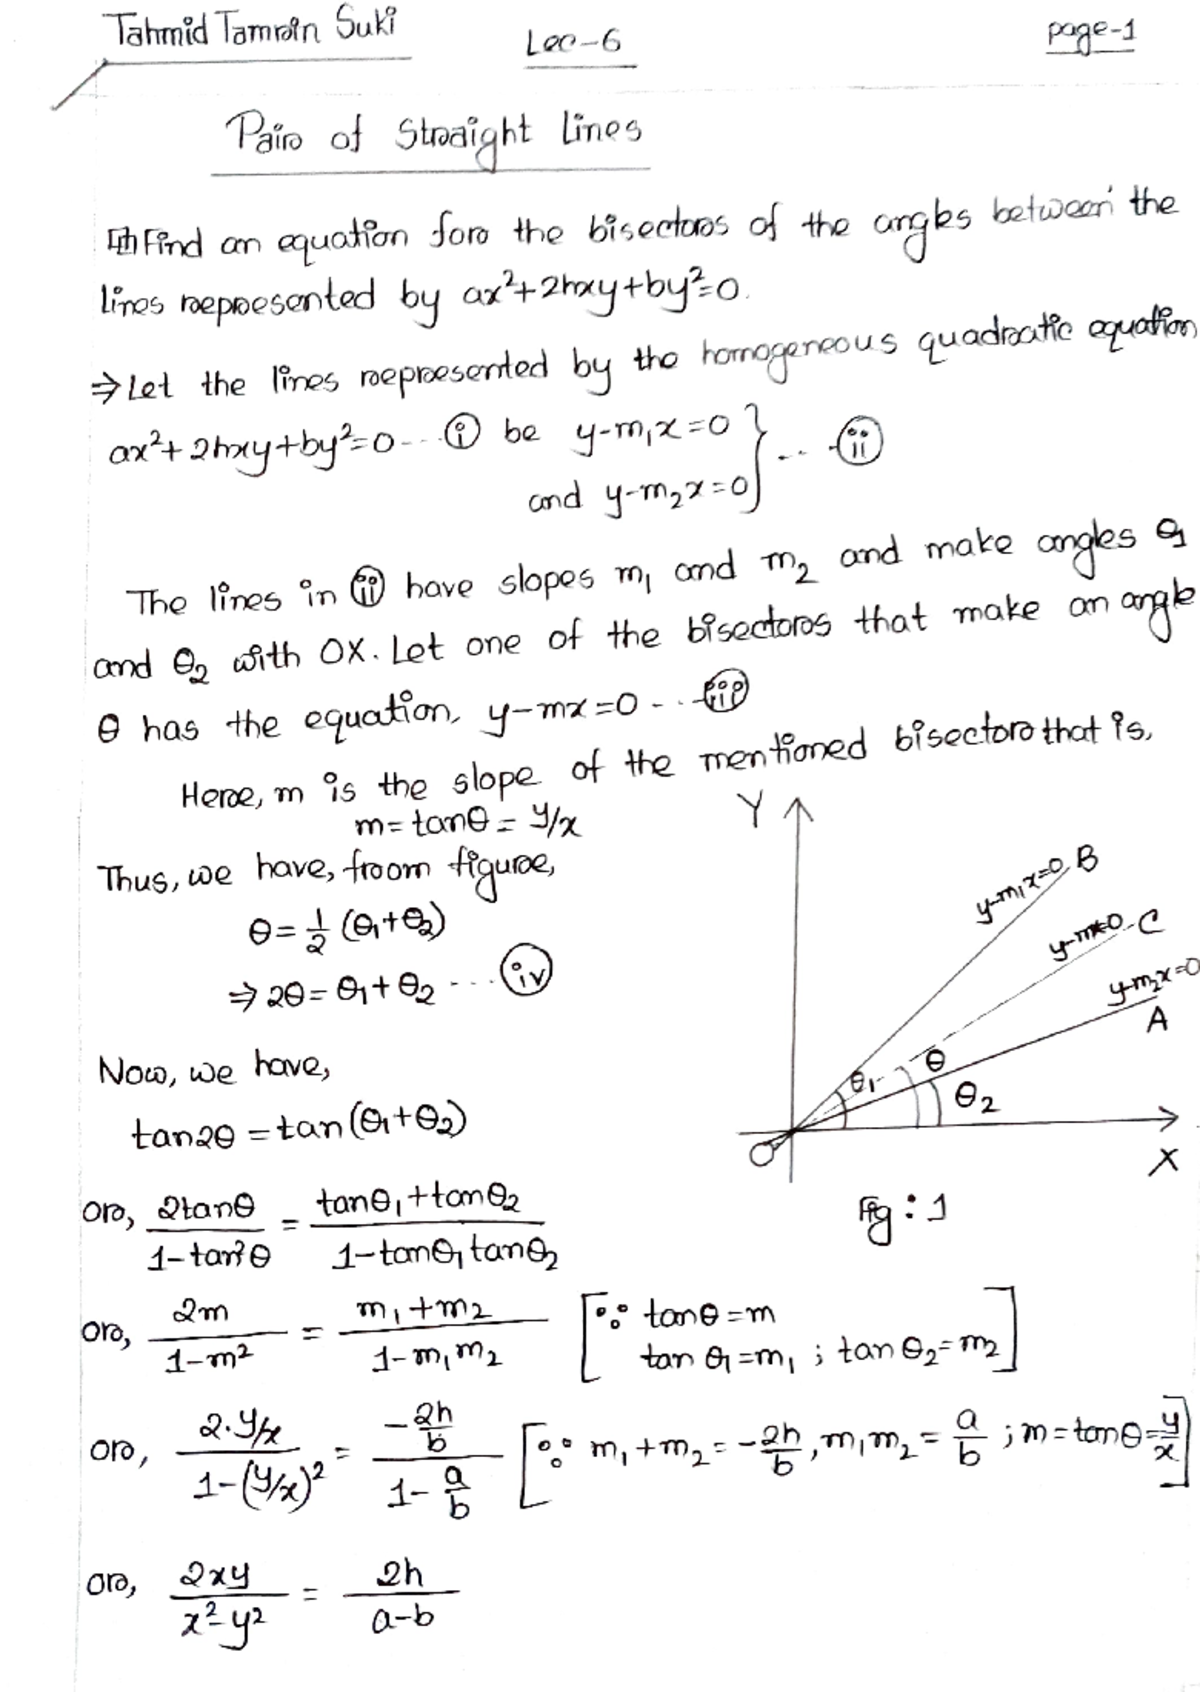 Tahmid Tamrin Suki
Lec-6
page-1
Pair of Straight Lines
Find an equation for the bisectors of the angles between the
lines represented by ax²+2hxy+by²=0.
⇒ Let the lines represented by the homogeneous quadratic equation
ax²+2hxy+by²=0 --- (i) be y-m₁x=0 } --- (ii)
and y-m₂x=0
The lines in (ii) have slopes m₁ and m₂ and make angles θ₁
and θ₂ with OX. Let one of the bisectors that make an angle
θ has the equation, y-mx=0 --- (iii)
Here, m is the slope of the mentioned bisector that is,
m=tanθ = y/x
Thus, we have, from figure,
θ = 1/2 (θ₁+θ₂)
⇒ 2θ = θ₁+θ₂ --- (iv)
Now, we have,
tan2θ = tan(θ₁+θ₂)
or, 2tanθ/(1-tan²θ) = (tanθ₁+tanθ₂)/(1-tanθ₁tanθ₂)
or, 2m/(1-m²) = (m₁+m₂)/(1-m₁m₂) [∵ tanθ=m
tanθ₁=m₁ ; tanθ₂=m₂]
or, (2·y/x)/(1-(y/x)²) = (-2h/b)/(1-a/b) [∵ m₁+m₂=-2h/b, m₁m₂=a/b ; m=tanθ=y/x]
or, 2xy/(x²-y²) = 2h/(a-b)
Y
y-m₁x=0 B
y-mx=0 C
y-m₂x=0
A
θ₁
θ
θ₂
O
X
Fig : 1